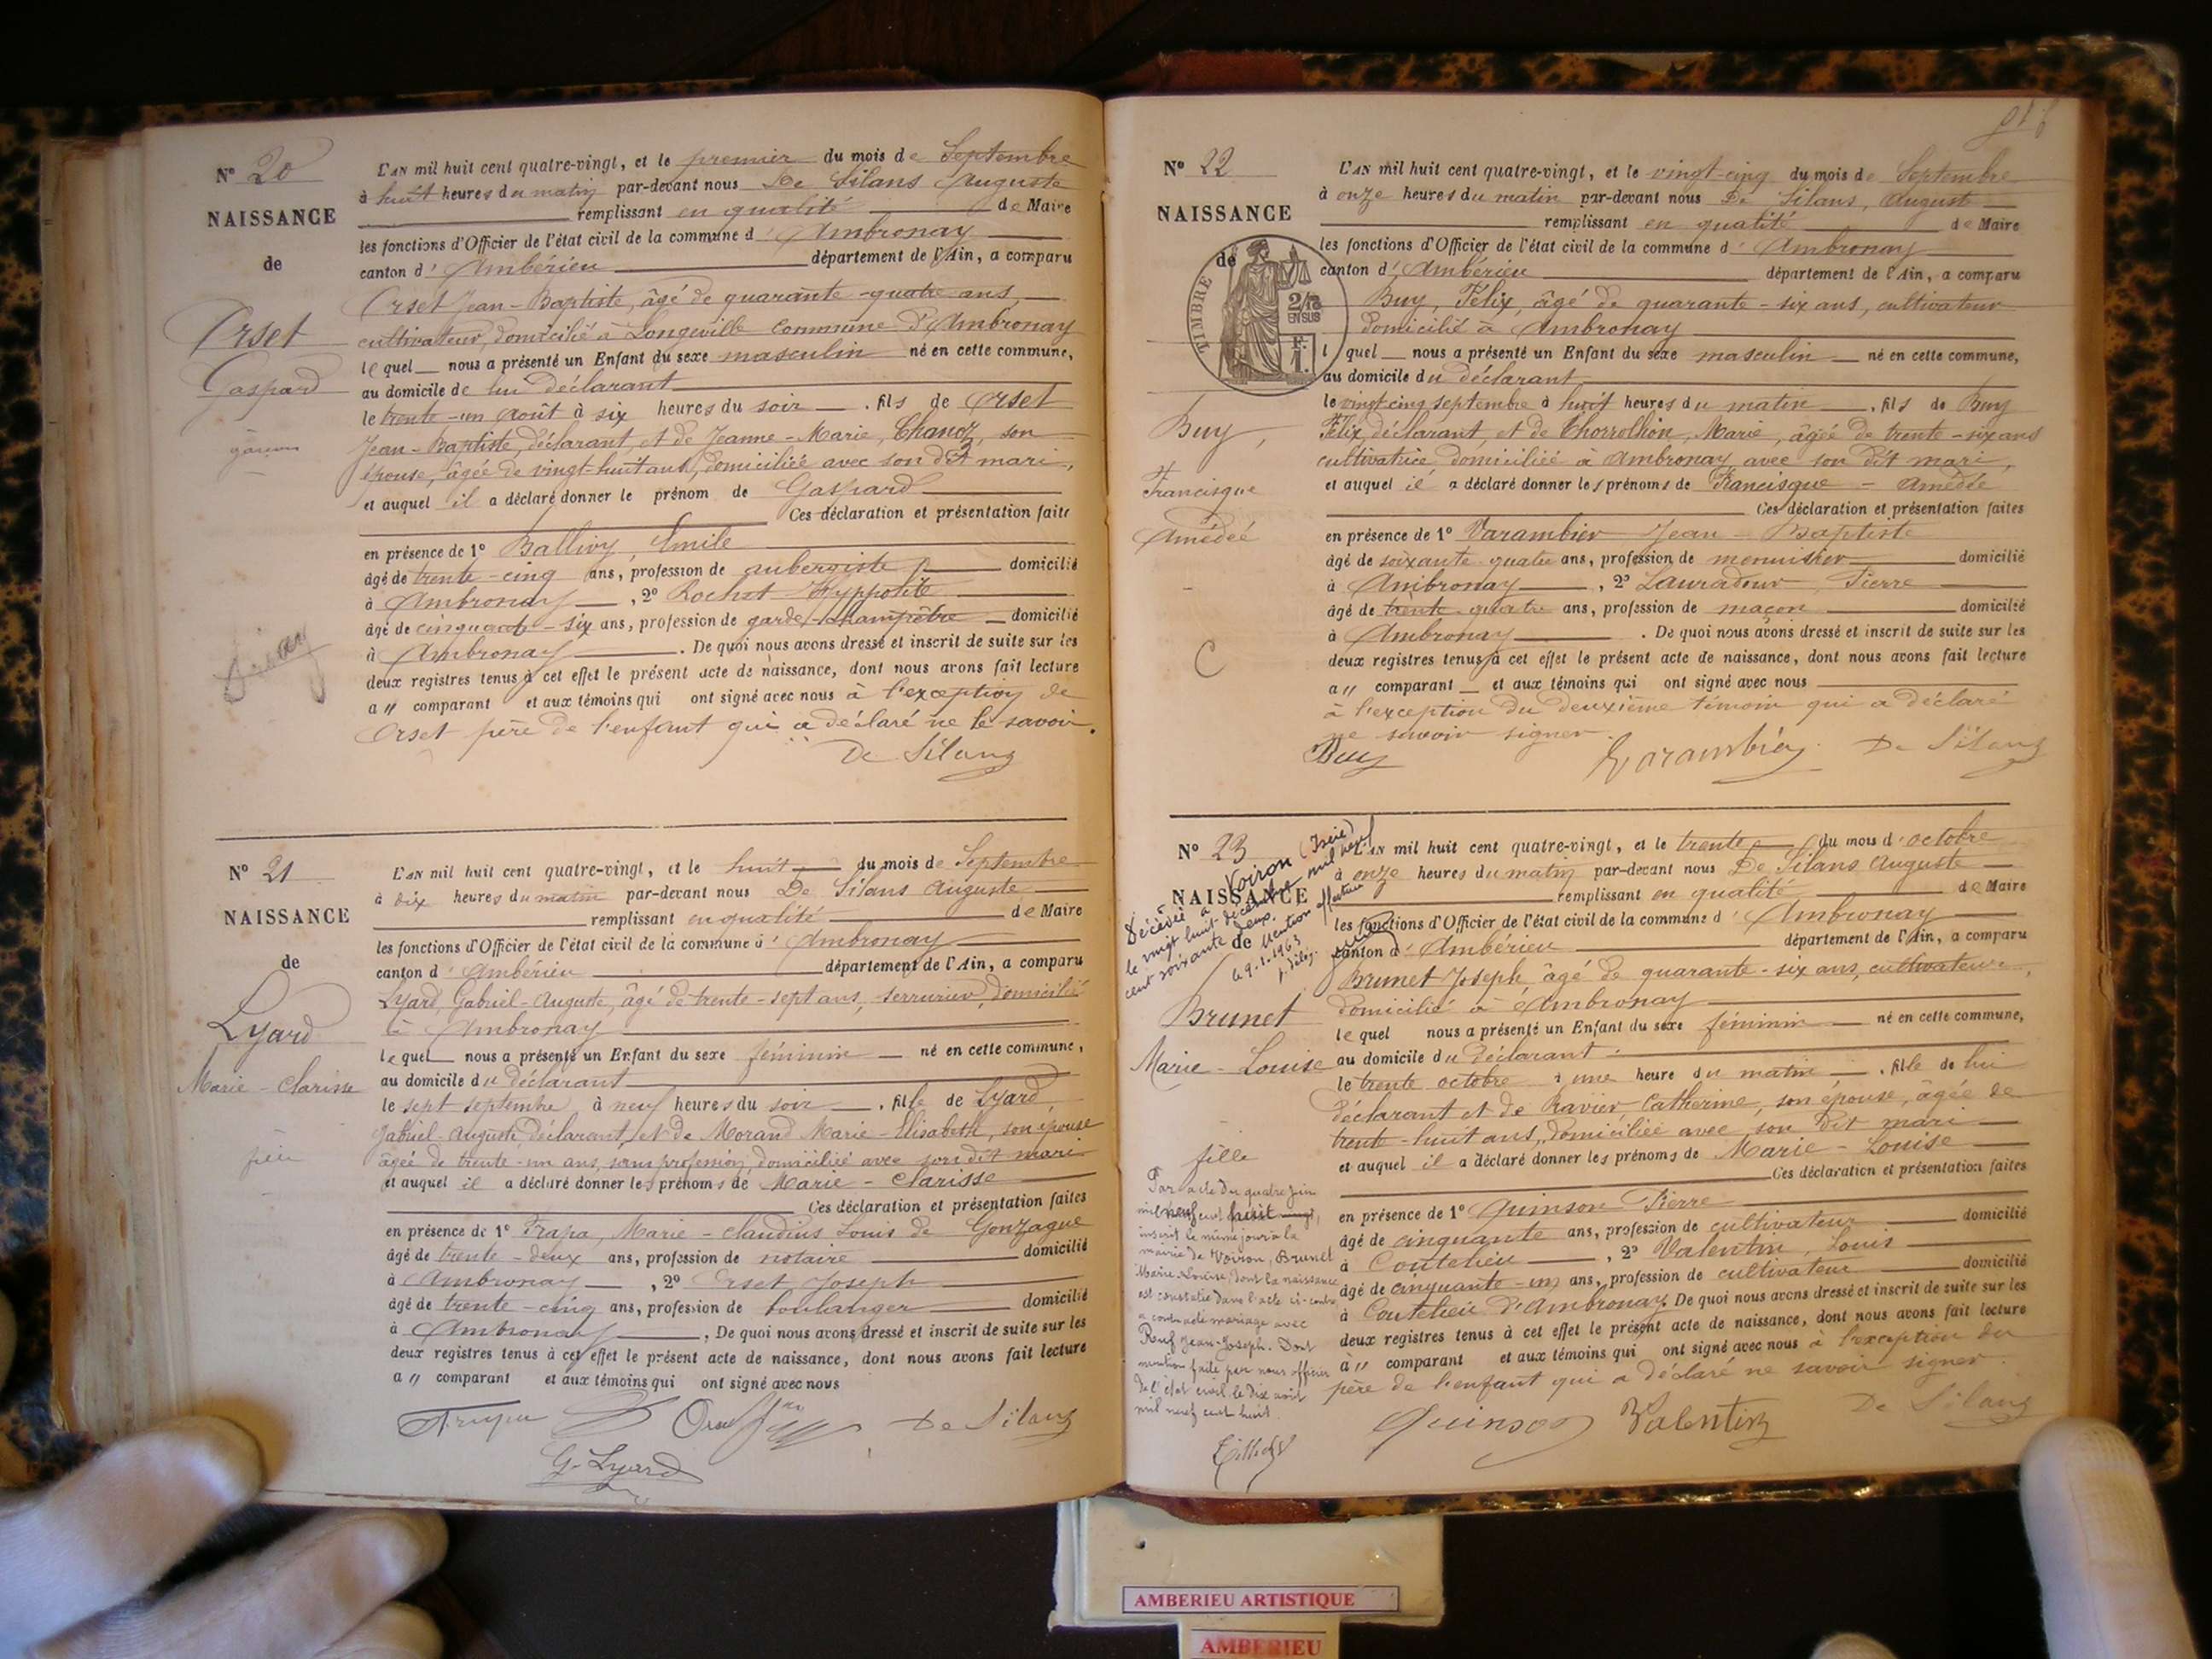 Nº 20
NAISSANCE
de
Orset
Gaspard
garçon
L'AN mil huit cent quatre-vingt, et le premier du mois de Septembre
à huit heures du matin par-devant nous De Silans Auguste
remplissant en qualité de Maire
les fonctions d'Officier de l'état civil de la commune d'Ambronay
canton d'Ambérieu département de l'Ain, a comparu
Orset Jean-Baptiste, âgé de quarante-quatre ans,
cultivateur, domicilié à Longeville commune d'Ambronay
lequel nous a présenté un Enfant du sexe masculin né en cette commune,
au domicile de lui déclarant
le trente-un août à six heures du soir, fils de Orset
Jean-Baptiste, déclarant, et de Jeanne-Marie, Chanoz, son
épouse, âgée de vingt-huit ans, domiciliée avec son dit mari,
et auquel il a déclaré donner le prénom de Gaspard
Ces déclaration et présentation faites
en présence de 1º Ballivy, Emile
âgé de trente-cinq ans, profession de aubergiste domicilié
à Ambronay, 2º Rochet Hyppolite
âgé de cinquante-six ans, profession de garde-champêtre domicilié
à Ambronay. De quoi nous avons dressé et inscrit de suite sur les
deux registres tenus à cet effet le présent acte de naissance, dont nous avons fait lecture
a u comparant et aux témoins qui ont signé avec nous à l'exception de
Orset père de l'enfant qui a déclaré ne le savoir.
De Silans
Nº 21
NAISSANCE
de
Lyard
Marie-Clarisse
fille
L'AN mil huit cent quatre-vingt, et le huit du mois de Septembre
à dix heures du matin par-devant nous De Silans Auguste
remplissant en qualité de Maire
les fonctions d'Officier de l'état civil de la commune d'Ambronay
canton d'Ambérieu département de l'Ain, a comparu
Lyard, Gabriel-Auguste, âgé de trente-sept ans, serrurier, domicilié
à Ambronay
lequel nous a présenté un Enfant du sexe féminin né en cette commune,
au domicile du déclarant
le sept septembre à neuf heures du soir, fille de Lyard,
Gabriel-Auguste déclarant, et de Morand Marie-Elisabeth, son épouse
âgée de trente-un ans, sans profession, domiciliée avec son dit mari
et auquel il a déclaré donner les prénoms de Marie-Clarisse
Ces déclaration et présentation faites
en présence de 1º Trapa, Marie-Claudius Louis de Gonzague
âgé de trente-deux ans, profession de notaire domicilié
à Ambronay, 2º Orset Joseph
âgé de trente-cinq ans, profession de boulanger domicilié
à Ambronay. De quoi nous avons dressé et inscrit de suite sur les
deux registres tenus à cet effet le présent acte de naissance, dont nous avons fait lecture
a u comparant et aux témoins qui ont signé avec nous
De Silans
G. Lyard
Nº 22
NAISSANCE
de
TIMBRE
2/10
EN SUS
F.
1.
Buy,
Francisque
Amédée
C
L'AN mil huit cent quatre-vingt, et le vingt-cinq du mois de Septembre
à onze heures du matin par-devant nous De Silans, Auguste
remplissant en qualité de Maire
les fonctions d'Officier de l'état civil de la commune d'Ambronay
canton d'Ambérieu département de l'Ain, a comparu
Buy, Félix, âgé de quarante-six ans, cultivateur
domicilié à Ambronay
l quel nous a présenté un Enfant du sexe masculin né en cette commune,
au domicile du déclarant
le vingt-cinq septembre à huit heures du matin, fils de Buy
Félix, déclarant, et de Chorrollion, Marie, âgée de trente-six ans
cultivatrice, domiciliée à Ambronay avec son dit mari,
et auquel il a déclaré donner les prénoms de Francisque-Amédée
Ces déclaration et présentation faites
en présence de 1º Varambier Jean-Baptiste
âgé de soixante-quatre ans, profession de menuisier domicilié
à Ambronay, 2º Lauradour Pierre
âgé de trente-quatre ans, profession de maçon domicilié
à Ambronay. De quoi nous avons dressé et inscrit de suite sur les
deux registres tenus à cet effet le présent acte de naissance, dont nous avons fait lecture
a u comparant et aux témoins qui ont signé avec nous
à l'exception du deuxième témoin qui a déclaré
ne savoir signer.
Buy Varambier De Silans
Nº 23
NAISSANCE
de
Décédée à Voiron (Isère)
le vingt huit décembre mil neuf
cent soixante deux.
Mention effectuée
le 9.1.1963
Brunet
Marie-Louise
fille
Par acte du quatre juin
mil neuf cent huit
inscrit le même jour à la
mairie de Voiron, Brunet
Marie-Louise, dont la naissance
est constatée dans l'acte ci-contre
a contracté mariage avec
Jean-Joseph. Dont
mention faite par nous officier
de l'état civil le dix août
mil neuf cent huit.
L'AN mil huit cent quatre-vingt, et le trente du mois d'octobre
à onze heures du matin par-devant nous De Silans Auguste
remplissant en qualité de Maire
les fonctions d'Officier de l'état civil de la commune d'Ambronay
canton d'Ambérieu département de l'Ain, a comparu
Brunet Joseph, âgé de quarante-six ans, cultivateur,
domicilié à Ambronay
lequel nous a présenté un Enfant du sexe féminin né en cette commune,
au domicile du déclarant
le trente octobre à une heure du matin, fille de lui
déclarant et de Ravier, Catherine, son épouse, âgée de
trente-huit ans, domiciliée avec son dit mari
et auquel il a déclaré donner les prénoms de Marie-Louise
Ces déclaration et présentation faites
en présence de 1º Quinson Pierre
âgé de cinquante ans, profession de cultivateur domicilié
à Coutelieu, 2º Valentin, Louis
âgé de cinquante-un ans, profession de cultivateur domicilié
à Coutelieu d'Ambronay. De quoi nous avons dressé et inscrit de suite sur les
deux registres tenus à cet effet le présent acte de naissance, dont nous avons fait lecture
à u comparant et aux témoins qui ont signé avec nous à l'exception du
père de l'enfant qui a déclaré ne savoir signer.
Quinson Valentin De Silans
AMBERIEU ARTISTIQUE
AMBERIEU